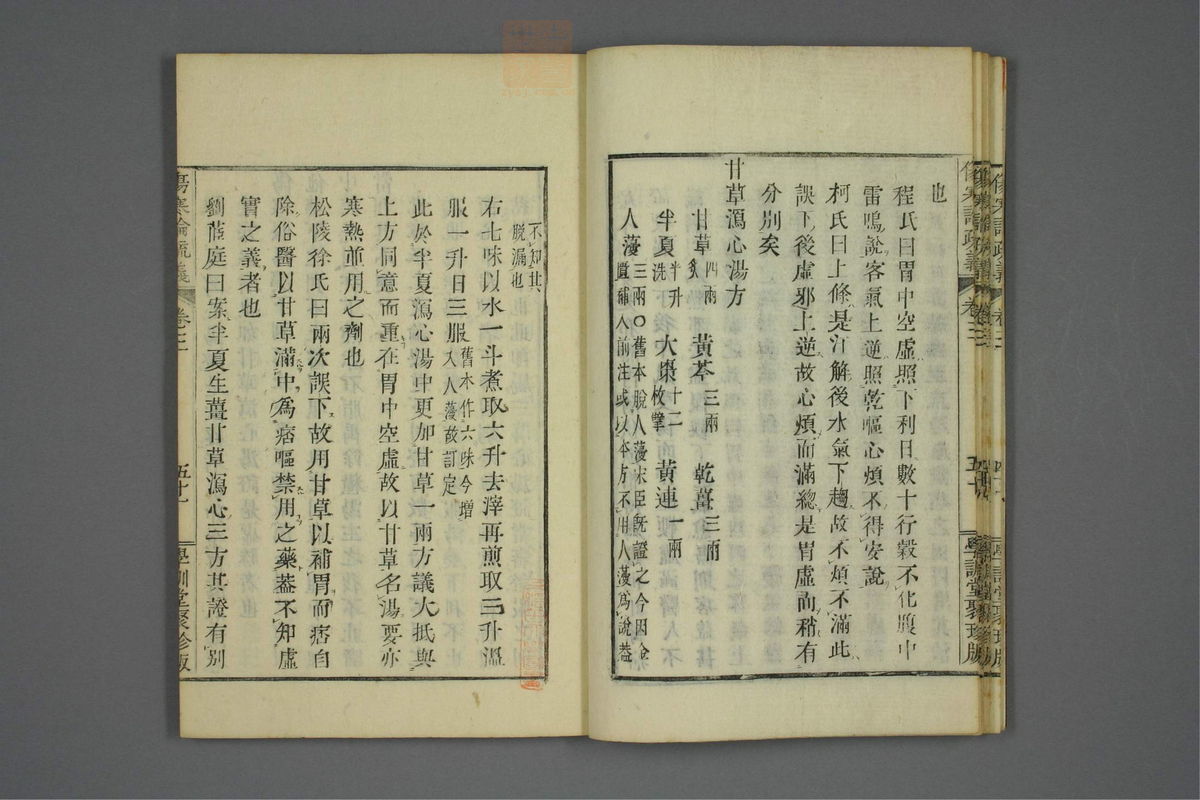 也
程氏曰胃中空虛照下利日數十行穀不化腹中
雷鳴說客氣上逆照乾嘔心煩不得安說
柯氏曰上條是汗解後水氣下趨故不煩不滿此
誤下後虛邪上逆故心煩而滿總是胃虛而稍有
分別矣
甘草瀉心湯方
甘草四兩炙 黃芩三兩 乾薑三兩
半夏半升洗 大棗十二枚擘 黃連一兩
人薓三兩○舊本脫人薓宋臣既證之今因僉
置補入前注或以本方不用人薓爲說葢
不知其
脫漏也
右七味以水一斗煮取六升去滓再煎取三升溫
服一升日三服舊本作六味今增
入人薓故訂定
此於半夏瀉心湯中更加甘草一兩方議大抵與
上方同意而重在胃中空虛故以甘草名湯要亦
寒熱並用之劑也
松陵徐氏曰兩次誤下故用甘草以補胃而痞自
除俗醫以甘草滿中爲痞嘔禁用之藥葢不知虛
實之義者也
劉茝庭曰案半夏生薑甘草瀉心三方其證有別
傷寒論疏義
卷三
五十一
學訓堂聚珍版